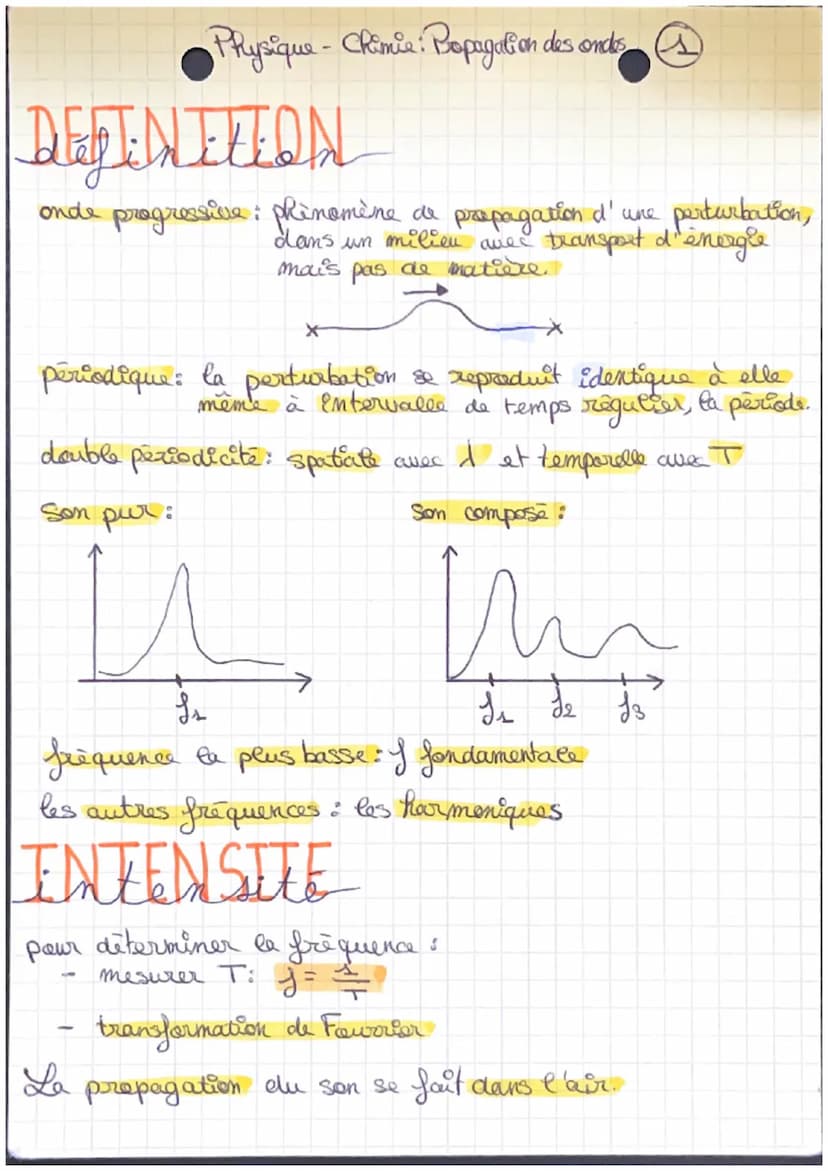 Physique - Chimie : Propagation des ondes 1
DEFINITION
définition
onde progressive : phénomène de propagation d'une perturbation,
dans un milieu avec transport d'énergie
mais pas de matière.
périodique : la perturbation se reproduit identique à elle
même à intervalle de temps régulier, la période.
double périodicité : spatiale avec λ et temporelle avec T
Son pur :
Son composé :
f1
f1 f2 f3
fréquence la plus basse : f fondamentale
les autres fréquences : les harmoniques
INTENSITE
intensité
pour déterminer la fréquence :
- mesurer T : f = 1/T
- transformation de Fourrier
La propagation du son se fait dans l'air.